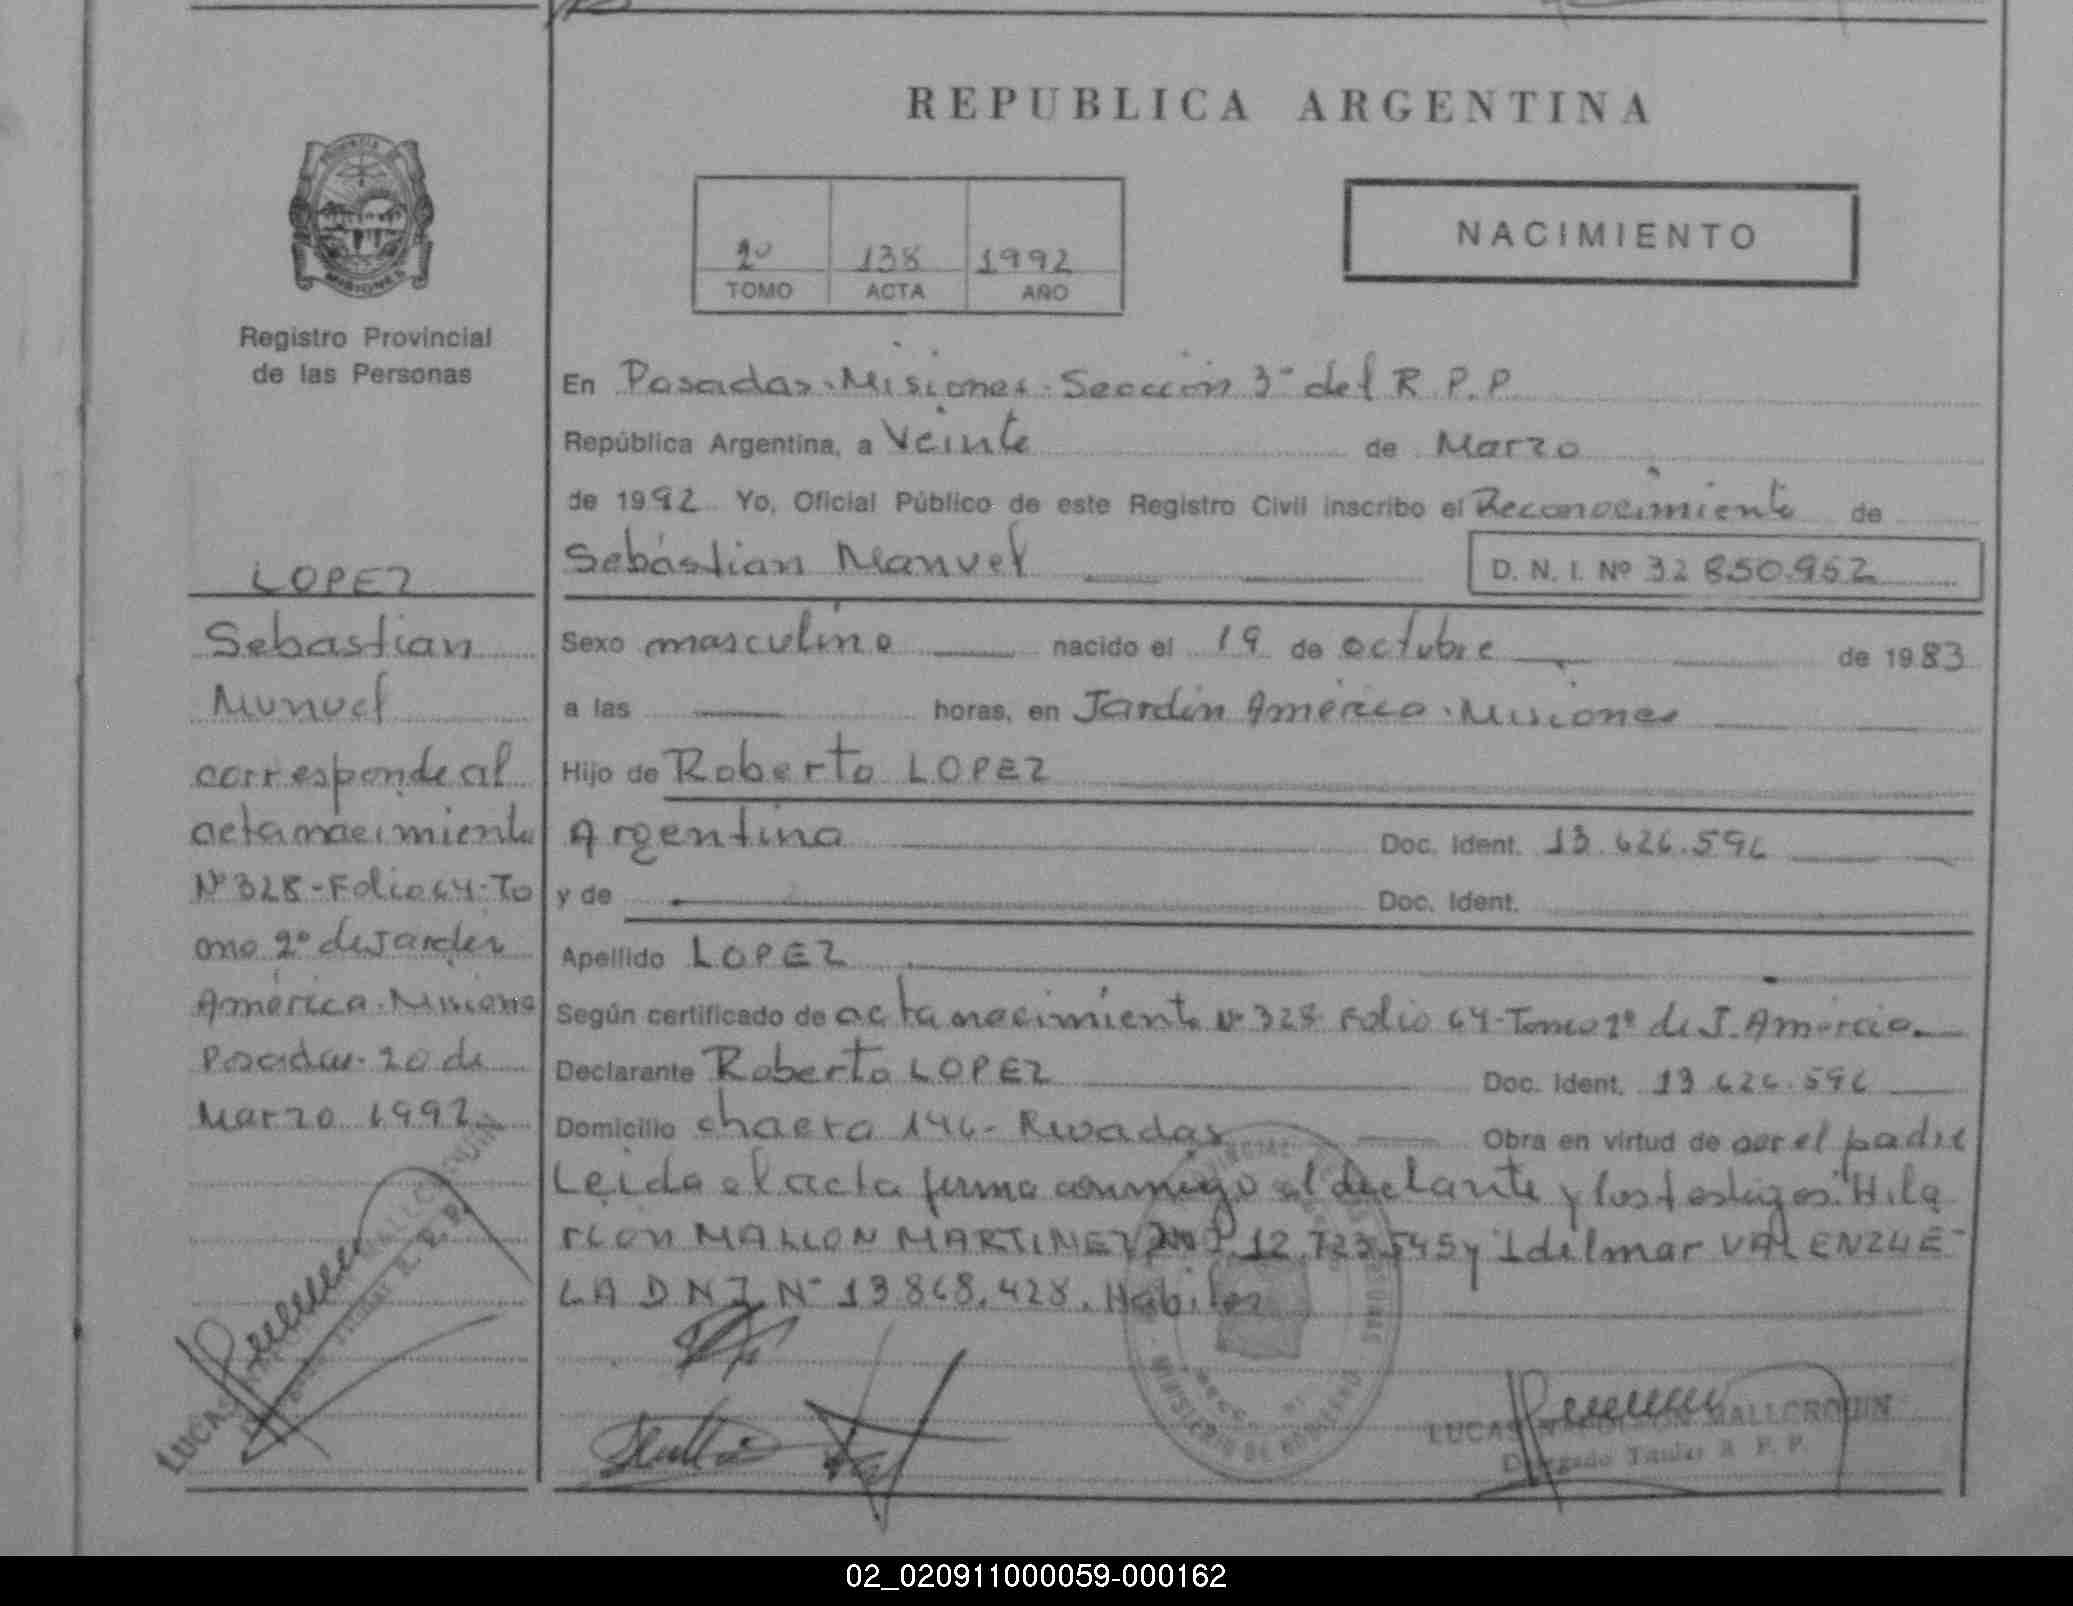 REPUBLICA ARGENTINA
MISIONES
Registro Provincial
de las Personas
2º 138 1992
TOMO ACTA AÑO
NACIMIENTO
En Posadas. Misiones. Sección 3ª del R. P. P.
República Argentina, a Veinte de Marzo
de 1992 Yo, Oficial Público de este Registro Civil inscribo el Reconocimiento de
Sebástian Manuel D. N. I. Nº 32 850.952
Sexo masculino nacido el 19 de octubre de 1983
a las horas, en Jardín América. Misiones
Hijo de Roberto LOPEZ
Argentina Doc. Ident. 13.626.596
y de Doc. Ident.
Apellido LOPEZ
Según certificado de acta nacimiento Nº 328 Folio 64-Tomo 2º de J. América
Declarante Roberto LOPEZ Doc. Ident. 13 626.596
Domicilio chacra 146- Obra en virtud de ser el padre
Leida el acta firma conmigo el declante y los testigos: Hila
rion MALLON MARTINEZ 12.723.545 y Idelmar VALENZUE-
LA DNI Nº 13868.428. Habiles
LOPEZ
Sebastian
Manuel
corresponde al
acta nacimiento
Nº 328-Folio 64-To
omo 2º de Jardin
América. Misiones
Posadas. 20 de
Marzo 1992
LUCAS NAPOLEON MALLCROUIN
Delegado Titular R. P. P.
MINISTERIO DE GOBIERNO
LUCAS NAPOLEON MALLCROUIN
Delegado Titular R. P. P.
02_020911000059-000162